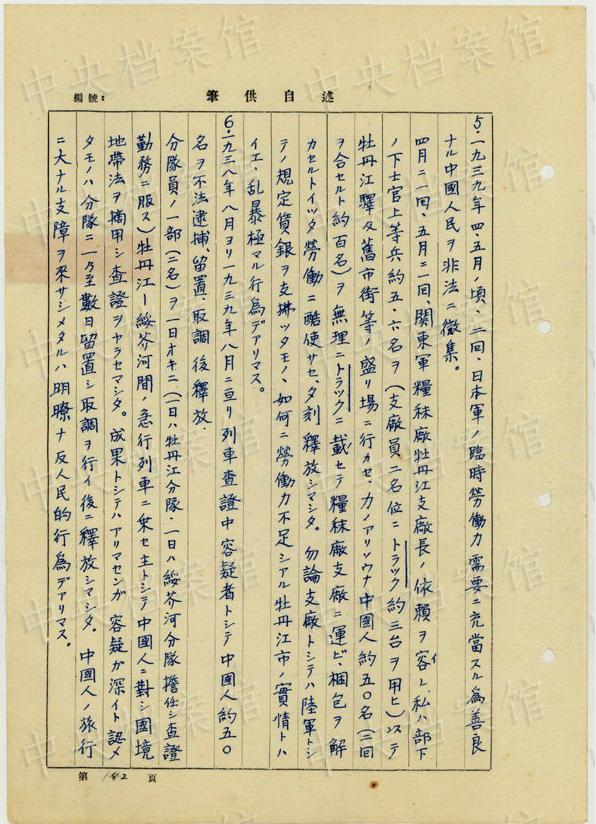 編號：
筆供自述
5.一九三九年四、五月ノ頃、二回、日本軍ノ臨時勞働力需要ニ充當スル為善良
ナル中國人民ヲ非法ニ徵集。
四月ニ一回、五月ニ一回、関東軍糧秣廠牡丹江支廠長ノ依賴ヲ容レ、私ハ部下
ノ下士官上等兵約五、六名ヲ（支廠員二名位ニトラック約三台ヲ用ヒ）シテ
牡丹江驛及舊市街等ノ盛リ場ニ行カセ、力ノアリソウナ中國人約五〇名（二回
ヲ合セルト約百名）ヲ無理ニトラックニ載セテ糧秣廠支廠ニ運ビ、梱包ヲ解
カセルトイッタ勞働ニ酷使サセ、夕刻釋放シマシタ。勿論支廠トシテハ陸軍トシ
テノ規定賃銀ヲ支拂ッタモノヽ、如何ニ勞働力不足シアル牡丹江市ノ實情トハ
イエ、乱暴極マル行為デアリマス。
6.一九三八年八月ヨリ一九三九年八月ニ亘リ列車查證中容疑者トシテ中國人約五〇
名ヲ不法逮捕、留置、取調後釋放.
分隊員ノ一部（三名）ヲ一日オキニ（一日ハ牡丹江分隊、一日ハ綏芬河分隊擔任シ査證
勤務ニ服ス）牡丹江ー綏芬河間ノ急行列車ニ乗セ主トシテ中國人ニ對シ國境
地帶法ヲ摘用シ査證ヲヤラセマシタ。成果トシテハアリマセンガ容疑ガ深イト認メ
タモノハ分隊ニ一乃至數日留置シ取調ヲ行イ後ニ釋放シマシタ。中國人ノ旅行
ニ大ナル支障ヲ來サシメタルハ明瞭ナ反人民的行為デアリマス。
第 142 頁
中央档案馆